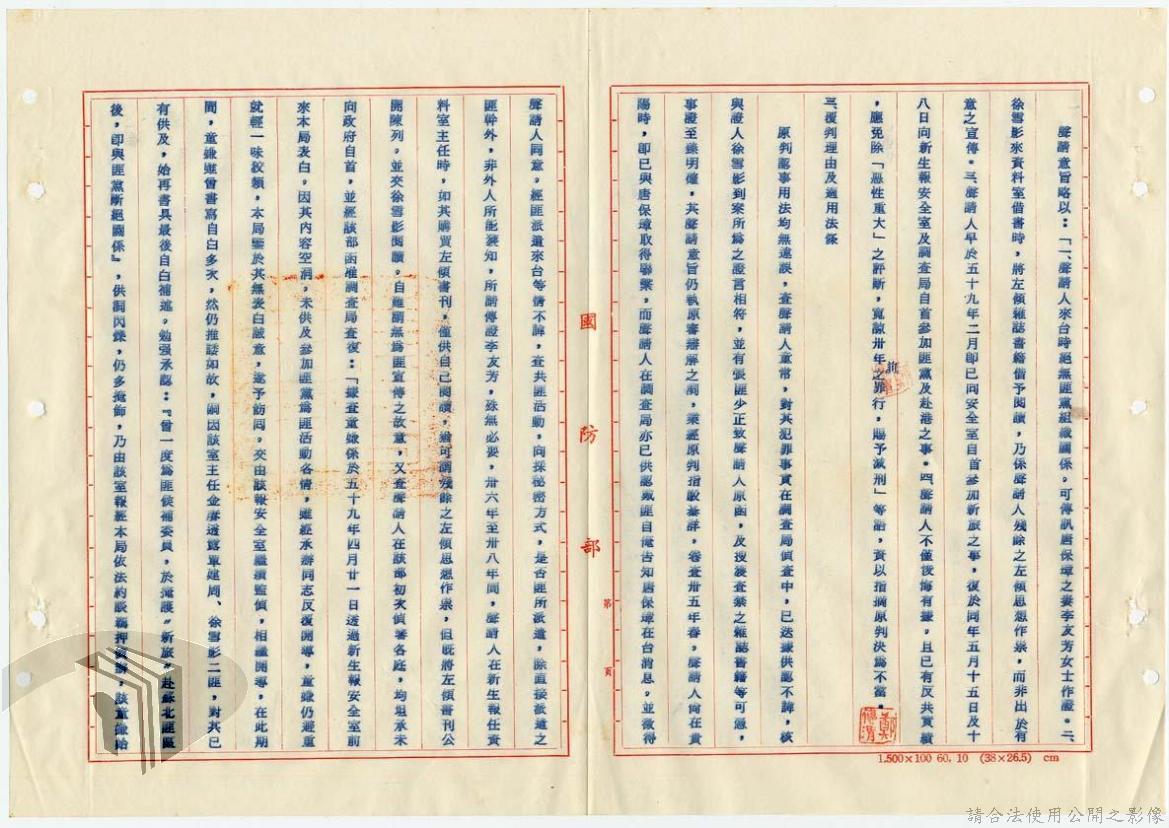 聲請意旨略以：「一、聲請人來台時絕無匪黨組織關係。可傳訊唐保璋之妻李友芳女士作證。二、
徐雪影來資料室借書時，將左傾雜誌書籍借予閱讀，乃係聲請人殘餘之左傾思想作祟，而非出於有
意之宣傳。三、聲請人早於五十九年二月即已向安全室自首參加新旅之事，復於同年五月十五日及十
八日向新生報安全室及調查局自首參加匪黨及赴港之事。四、聲請人不僅後悔有據，且已有反共實績
，應免除「惡性重大」之評斷，寬諒卅年之罪行，賜予減刑」等語，資以指摘原判決為不當。
三、覆判理由及適用法條
原判認事用法均無違誤，查聲請人童常，對其犯罪事實在調查局偵查中，已迭據供認不諱，核
與證人徐雪影到案所為之證言相符，並有張匪少正致聲請人原函，及搜獲查禁之雜誌書籍等可憑，
事證至臻明確，其聲請意旨仍執原審辯解之詞，業經原判指駁綦詳，卷查卅五年春，聲請人尚在貴
陽時，即已與唐保璋取得聯繫，而聲請人在調查局亦已供認戴匪自俺告知唐保璋在台消息，並徵得
聲請人同意，經匪派遣來台等情不諱，查共匪活動，向採秘密方式，是否匪所派遣，除直接派遣之
匪幹外，非外人所能獲知，所請傳證李友芳，殊無必要，卅六年至卅八年間，聲請人在新生報任資
料室主任時，如其購買左傾書刊，僅供自己閱讀，猶可謂殘餘之左傾思想作祟，但既將左傾書刊公
開陳列，並交徐雪影閱讀，自難謂無為匪宣傳之故意，又查聲請人在該部初次偵審各庭，均坦承未
向政府自首，並經該部函准調查局查復：「據查童嫌係於五十九年四月廿一日透過新生報安全室前
來本局表白，因其內容空洞，未供及參加匪黨為匪活動各情，雖經承辦同志反覆開導，童嫌仍避重
就輕一味狡賴，本局鑒於其無表白誠意，遂予訪問，交由該報安全室繼續監偵，相機開導，在此期
間，童嫌雖曾書寫自白多次，然仍推諉如故，嗣因該室主任金馨透露單建周、徐雪影二匪，對其已
有供及，始再書具最後自白補述，勉強承認：『曾一度為匪候補委員，於掩護〝新旅〞赴蘇北匪區
後，即與匪黨斷絕關係』，供詞閃爍，仍多掩飾，乃由該室報經本局依法約談羈押偵辦，該童嫌始
國防部
第 頁
1.500×100 60. 10 (38×26.5) cm
請合法使用公開之影像